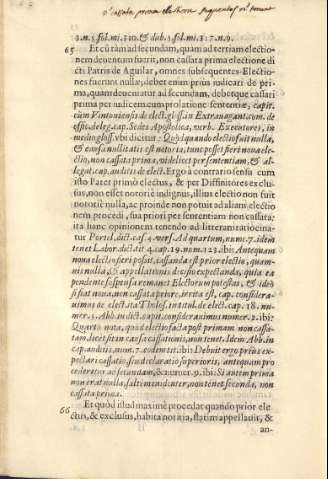 2.n.5 fol.mi.310.& dub.3.fol.mi.3:7.n.9.
65 Et cùm iam ad secundam, quam ad tertiam electio-
nem deuentum fuerit, non cassata prima electione di
cti Patris de Aguilar, omnes subsequentes Electio-
nes fuerunt nullæ, debet enim prius iudicari de pri-
ma, quam deueniatur ad secundam, debetque cassari
prima per iudicem cum prolatione sententiæ, capit.
cùm Vintoniensis de elect. gloss. in Extrauagantium. de
offic. deleg. cap. Sedes Apostolica, verb. Executores, in
medio gloss. vbi dicitur: Quod quando electio fuit nulla,
& causa nullitatis est notoria, tunc posset fieri noua ele-
ctio, non cassata prima, videlicet per sententiam, & al-
legat cap. auditis de elect. Ergò à contrario sensu cum
isto Pater primò electus, & per Diffinitores exclu-
sus, non esset notoriè indignus, illius electio non fuit
notoriè nulla, ac proinde non potuit ad aliam electio
nem procedi, sua priori per sententiam non cassata;
ita hanc opinionem tenendo ad litteram ratiocina-
tur Portel. dict. cas. 4. vers. Ad quartum, num. 7. idem
tenet Labor. dict. tit. 4. cap. 19. num. 123. ibi: Antequam
noua electio fieri possit, cassanda est prior electio, quam-
uis nulla, & appellationis decisio expectanda, quia ea
pendente suspensa remanet Electorum potestas, & ideò
si fiat noua, non cassata priore, irrita est, cap. considera-
uimus de elect. institut. de elect. cap. 18. nu-
mer. 5. Abb. in dict. capit. considerauimus numer. 2. ibi:
Quarto nota, quòd electio facta post primam non cassa-
tam, licet sit in casu cassationis, non tenet. Idem Abb. in
cap. auditis, num. 7. ad em tit. ibi: Debuit ergo prius ex-
pectari cassatio, seu declaratio superioris, antequam pro
cederetur ad secundam, & numer. 9. ibi: Si autem prima
non erat nulla, saltim eundem, non tenet secunda, non
cassata prima.
66 Et quòd istud maximè procedat quando prior ele
ctus, & exclusus, habita notitia, statim appellauit, &
an-